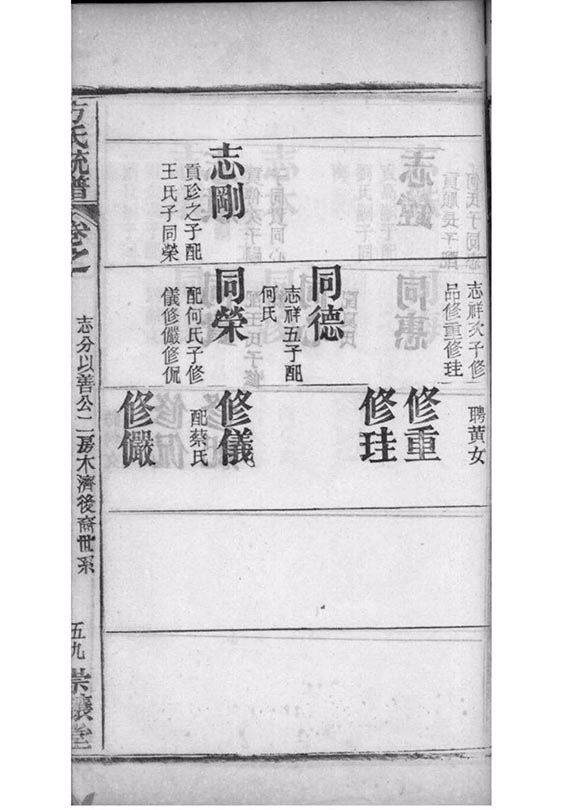 志剛
貢珍之子配
王氏子同榮
志祥次子修
品修重修珪
同德
志祥五子配
何氏
同榮
配何氏子修
儀修儼修侃
聘黃女
修重
修珪
修儀
配蔡氏
修儼
方氏統譜
卷之一
志分以善公二房木濟後裔世系
五九